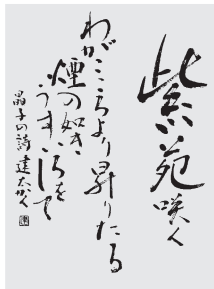 紫苑咲く
わがこころより昇りたる
煙の如き
うすいろをして
晶子の詩 達太かく